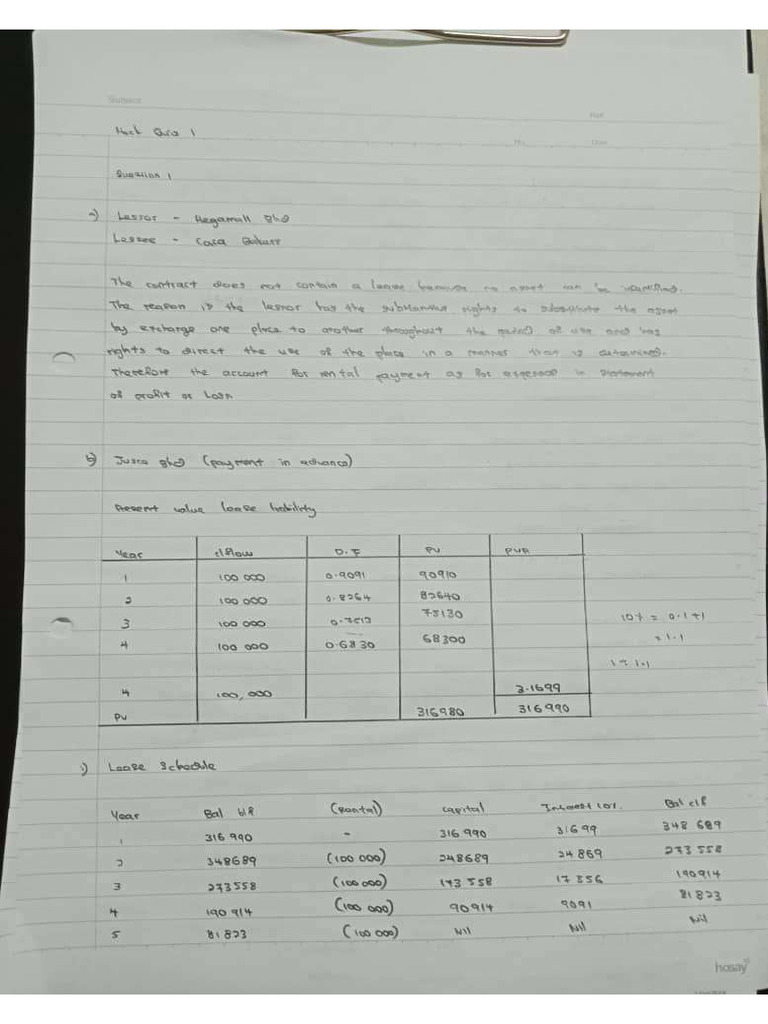 Subject
No. Date
Mock Quiz 1
Question 1
a) Lessor - Megamall Bhd
Lessee - Casa
The contract does not contain a lease because no asset can be identified.
The reason is the lessor has the substantive rights to substitute the asset
by exchange one place to another throughout the period of use and has
rights to direct the use of the place in a manner that is determined.
Therefore the account for rental payment as for expense in statement
of profit or loss
b) Jusco Bhd (payment in advance)
Present value lease liability
Year c/flow D.F PV PVA
1 100 000 0.9091 90910
2 100 000 0.8264 82640
3 100 000 0.7513 75130 10% = 0.1 + 1
4 100 000 0.6830 68300 = 1.1
1 ÷ 1.1
4 100,000 3.1699
PV 316980 316990
i) Lease Schedule
Year Bal b/f (Rental) Capital Interest 10% Bal c/f
1 316 990 - 316 990 31699 348 689
2 348689 (100 000) 248689 24 869 273 558
3 273558 (100 000) 173 558 17 356 190 914
4 190 914 (100 000) 90914 9091 81 823
5 81 823 (100 000) Nil Nil Nil
hosay